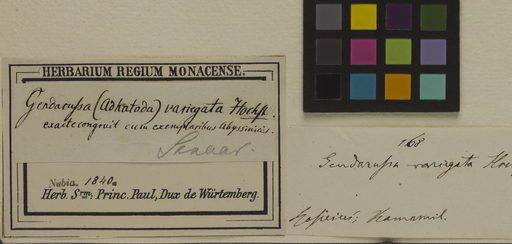 HERBARIUM REGIUM MONACENSE.
Gendarussa (Adhatoda) variegata Hochst.
exacte congruit cum exemplaribus Abyssinicis.
Sennar.
Nubia. 1840.
Herb. Smi: Princ. Paul, Dux de Würtemberg.
168
Gendarussa variegata Hoc
Hamamil.